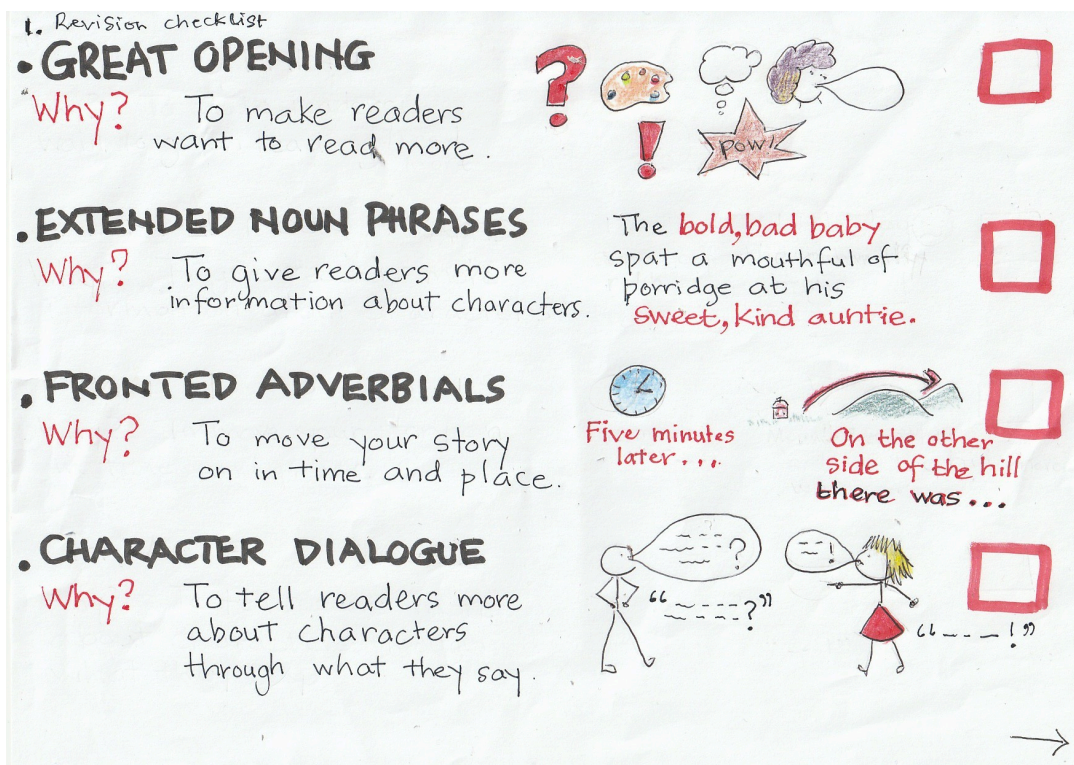 1. Revision checklist
• GREAT OPENING
Why? To make readers
want to read more.
POW!
• EXTENDED NOUN PHRASES
Why? To give readers more
information about characters.
The bold, bad baby
spat a mouthful of
porridge at his
sweet, kind auntie.
• FRONTED ADVERBIALS
Why? To move your story
on in time and place.
Five minutes
later...
On the other
side of the hill
there was...
• CHARACTER DIALOGUE
Why? To tell readers more
about characters
through what they say.
?
“ - - - - ?”
!
“ - - - !”